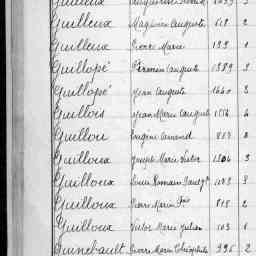 Guilleux Magloire Auguste 618 2
Guilleux Pierre Marie 199 1
Guillopé Firmin Auguste 1389 3
Guillopé Jean Auguste 1660 3
Guillois Jean Marie August 4
Guillou Eugène Armand 2
Guilloux Joseph Marie Victor 1804 3
Guilloux Louis Romain 3
Guilloux Pierre Marie Fois 818 2
Guilloux Victor Marie Julien 103 1
Guinebault Pierre Marie Théophile 996 2